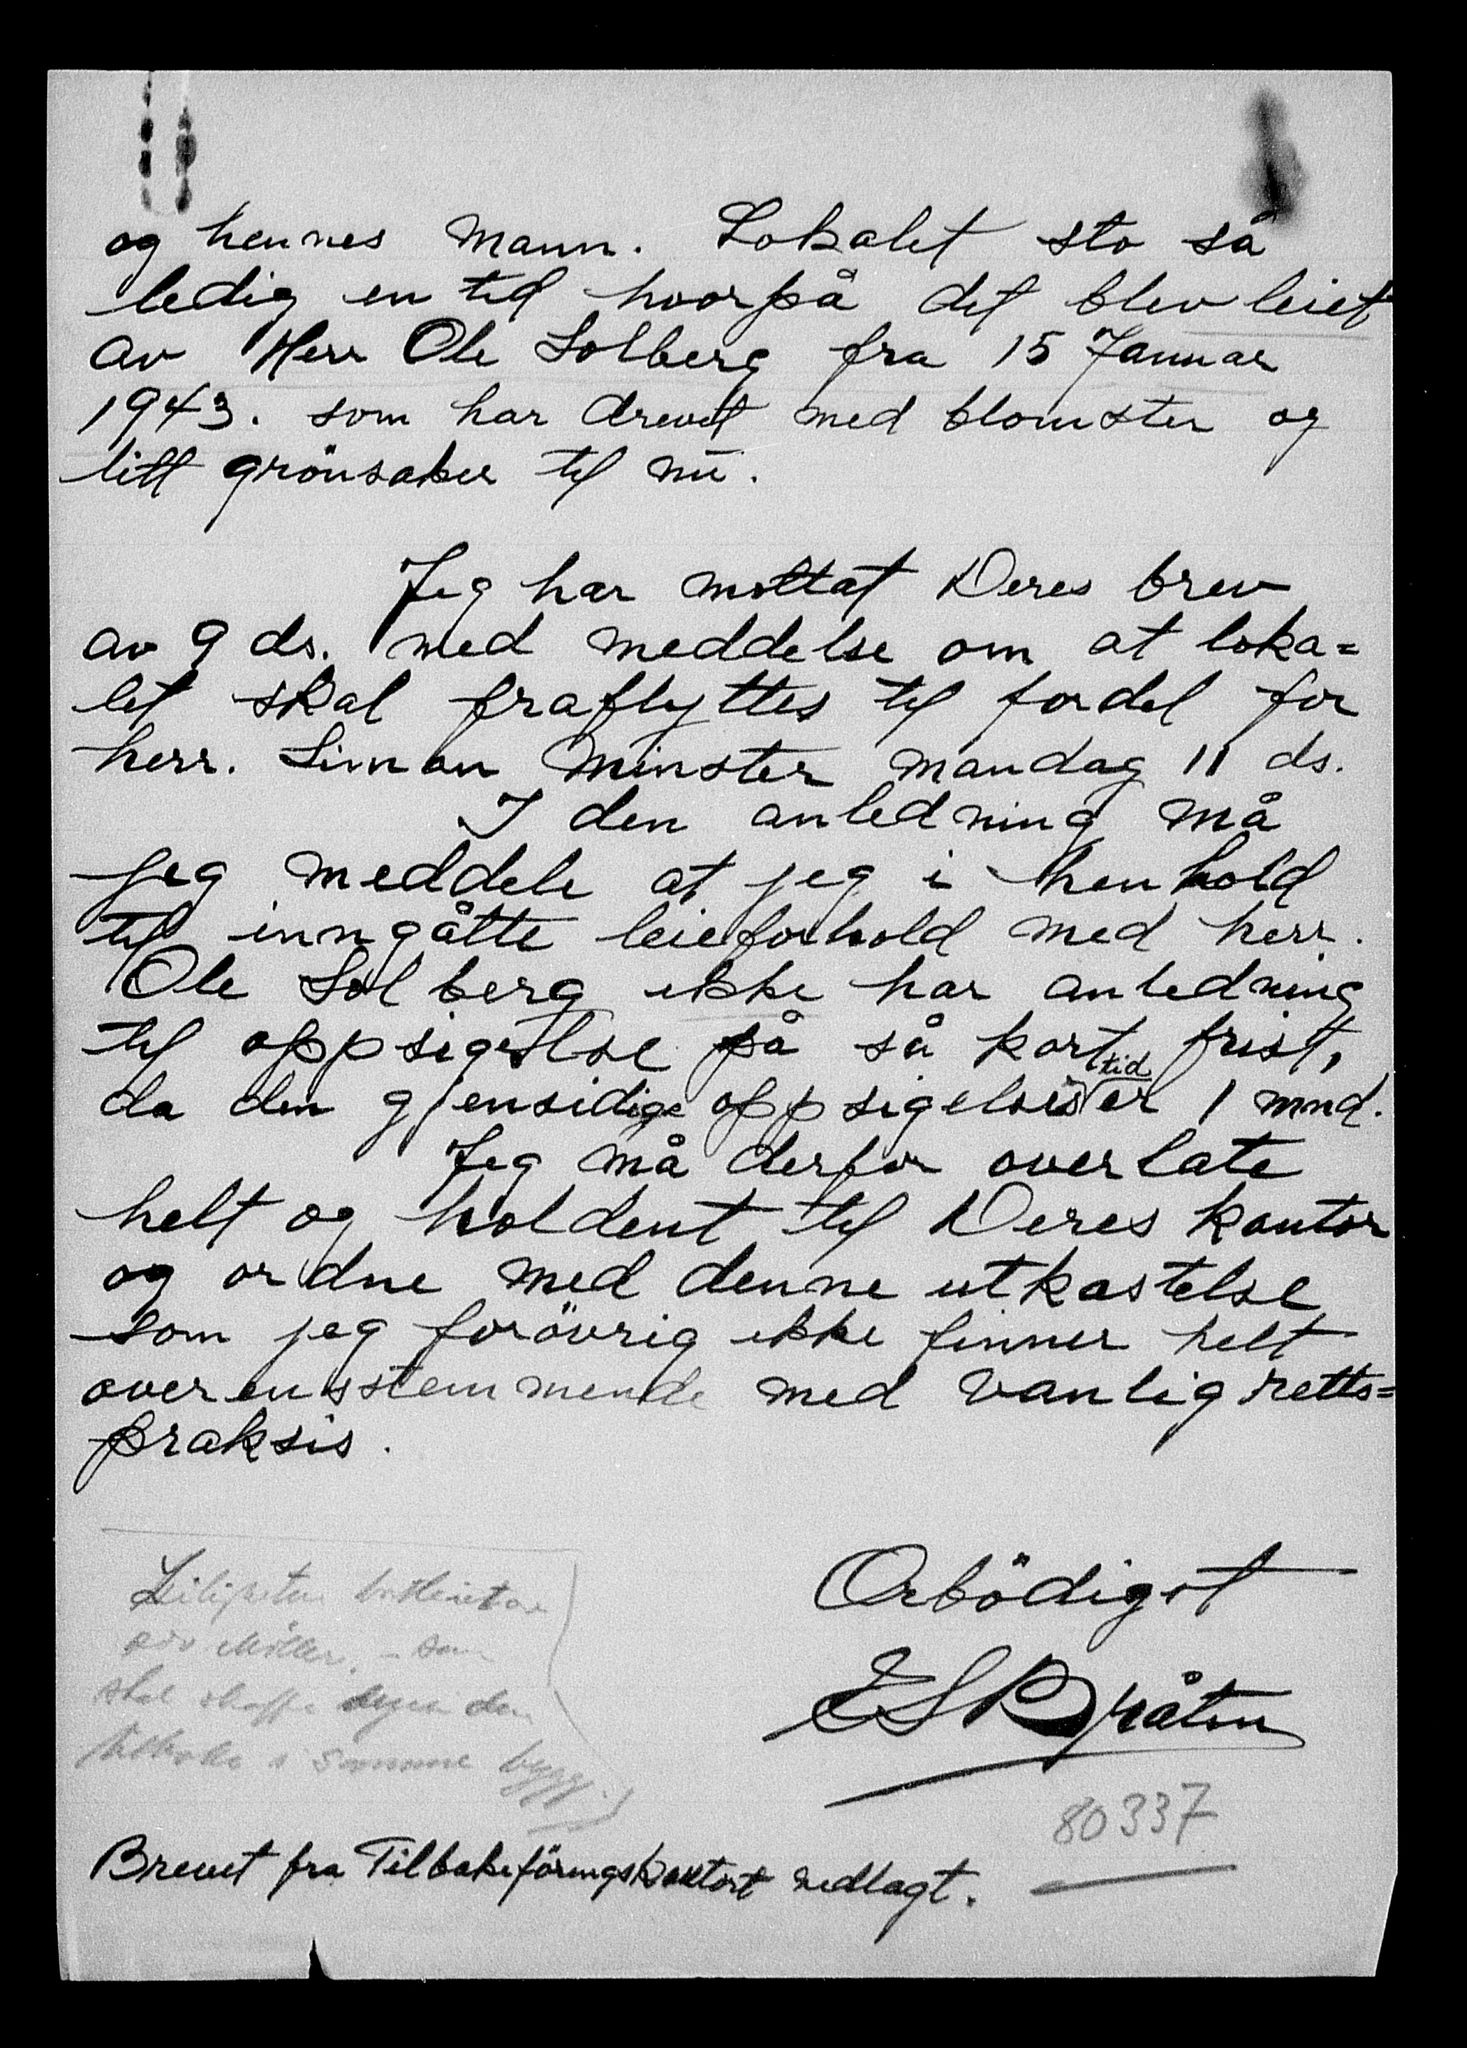 og hennes mann. Lokalet sto så
ledig en tid hvorpå det blev leiet
av Herr Ole Solberg fra 15 Januar
1943. som har drevet med blomster og
litt grönsaker til nu.
Jeg har mottat Deres brev
av 9 ds. med meddelse om at loka=
let skal fraflyttes til fordel for
herr. Simon Minster mandag 11 ds.
I den anledning må
jeg meddele at jeg i henhold
til inngåtte leieforhold med herr.
Ole Solberg ikke har anledning
til oppsigelse på så kort frist,
da den gjensidige oppsigelsestid er 1 mnd.
Jeg må derfor overlate
helt og holdent til Deres kontor
og ordne med denne utkastelse
som jeg forövrig ikke finner helt
overensstemmende med vanlig retts=
praksis.
Ærbödigst
E S Bråten
80337
Möller, - som
skal skaffe den
i samme bygg.
Brevet fra Tilbakeföringskontort vedlagt.